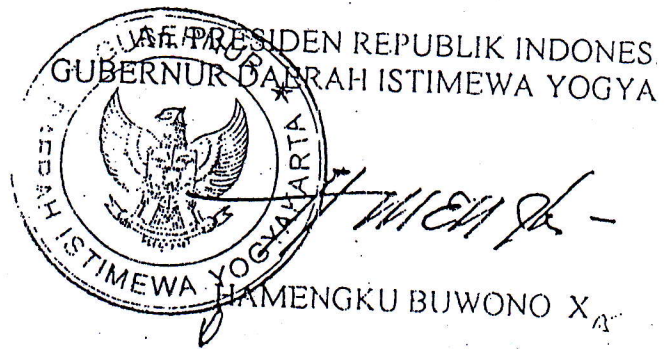 PRESIDEN REPUBLIK INDONES
GUBERNUR DAERAH ISTIMEWA YOGYA
GUBERNUR
DAERAH ISTIMEWA YOGYAKARTA
HAMENGKU BUWONO X